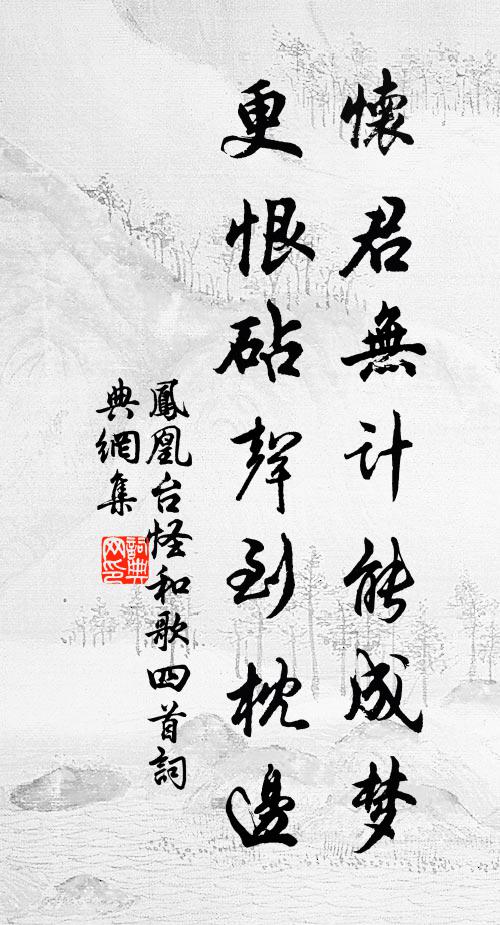 懷君無計能成梦
更恨砧聲到枕邊
鳳凰台怪和歌四首詞
典網集
詞典
网印